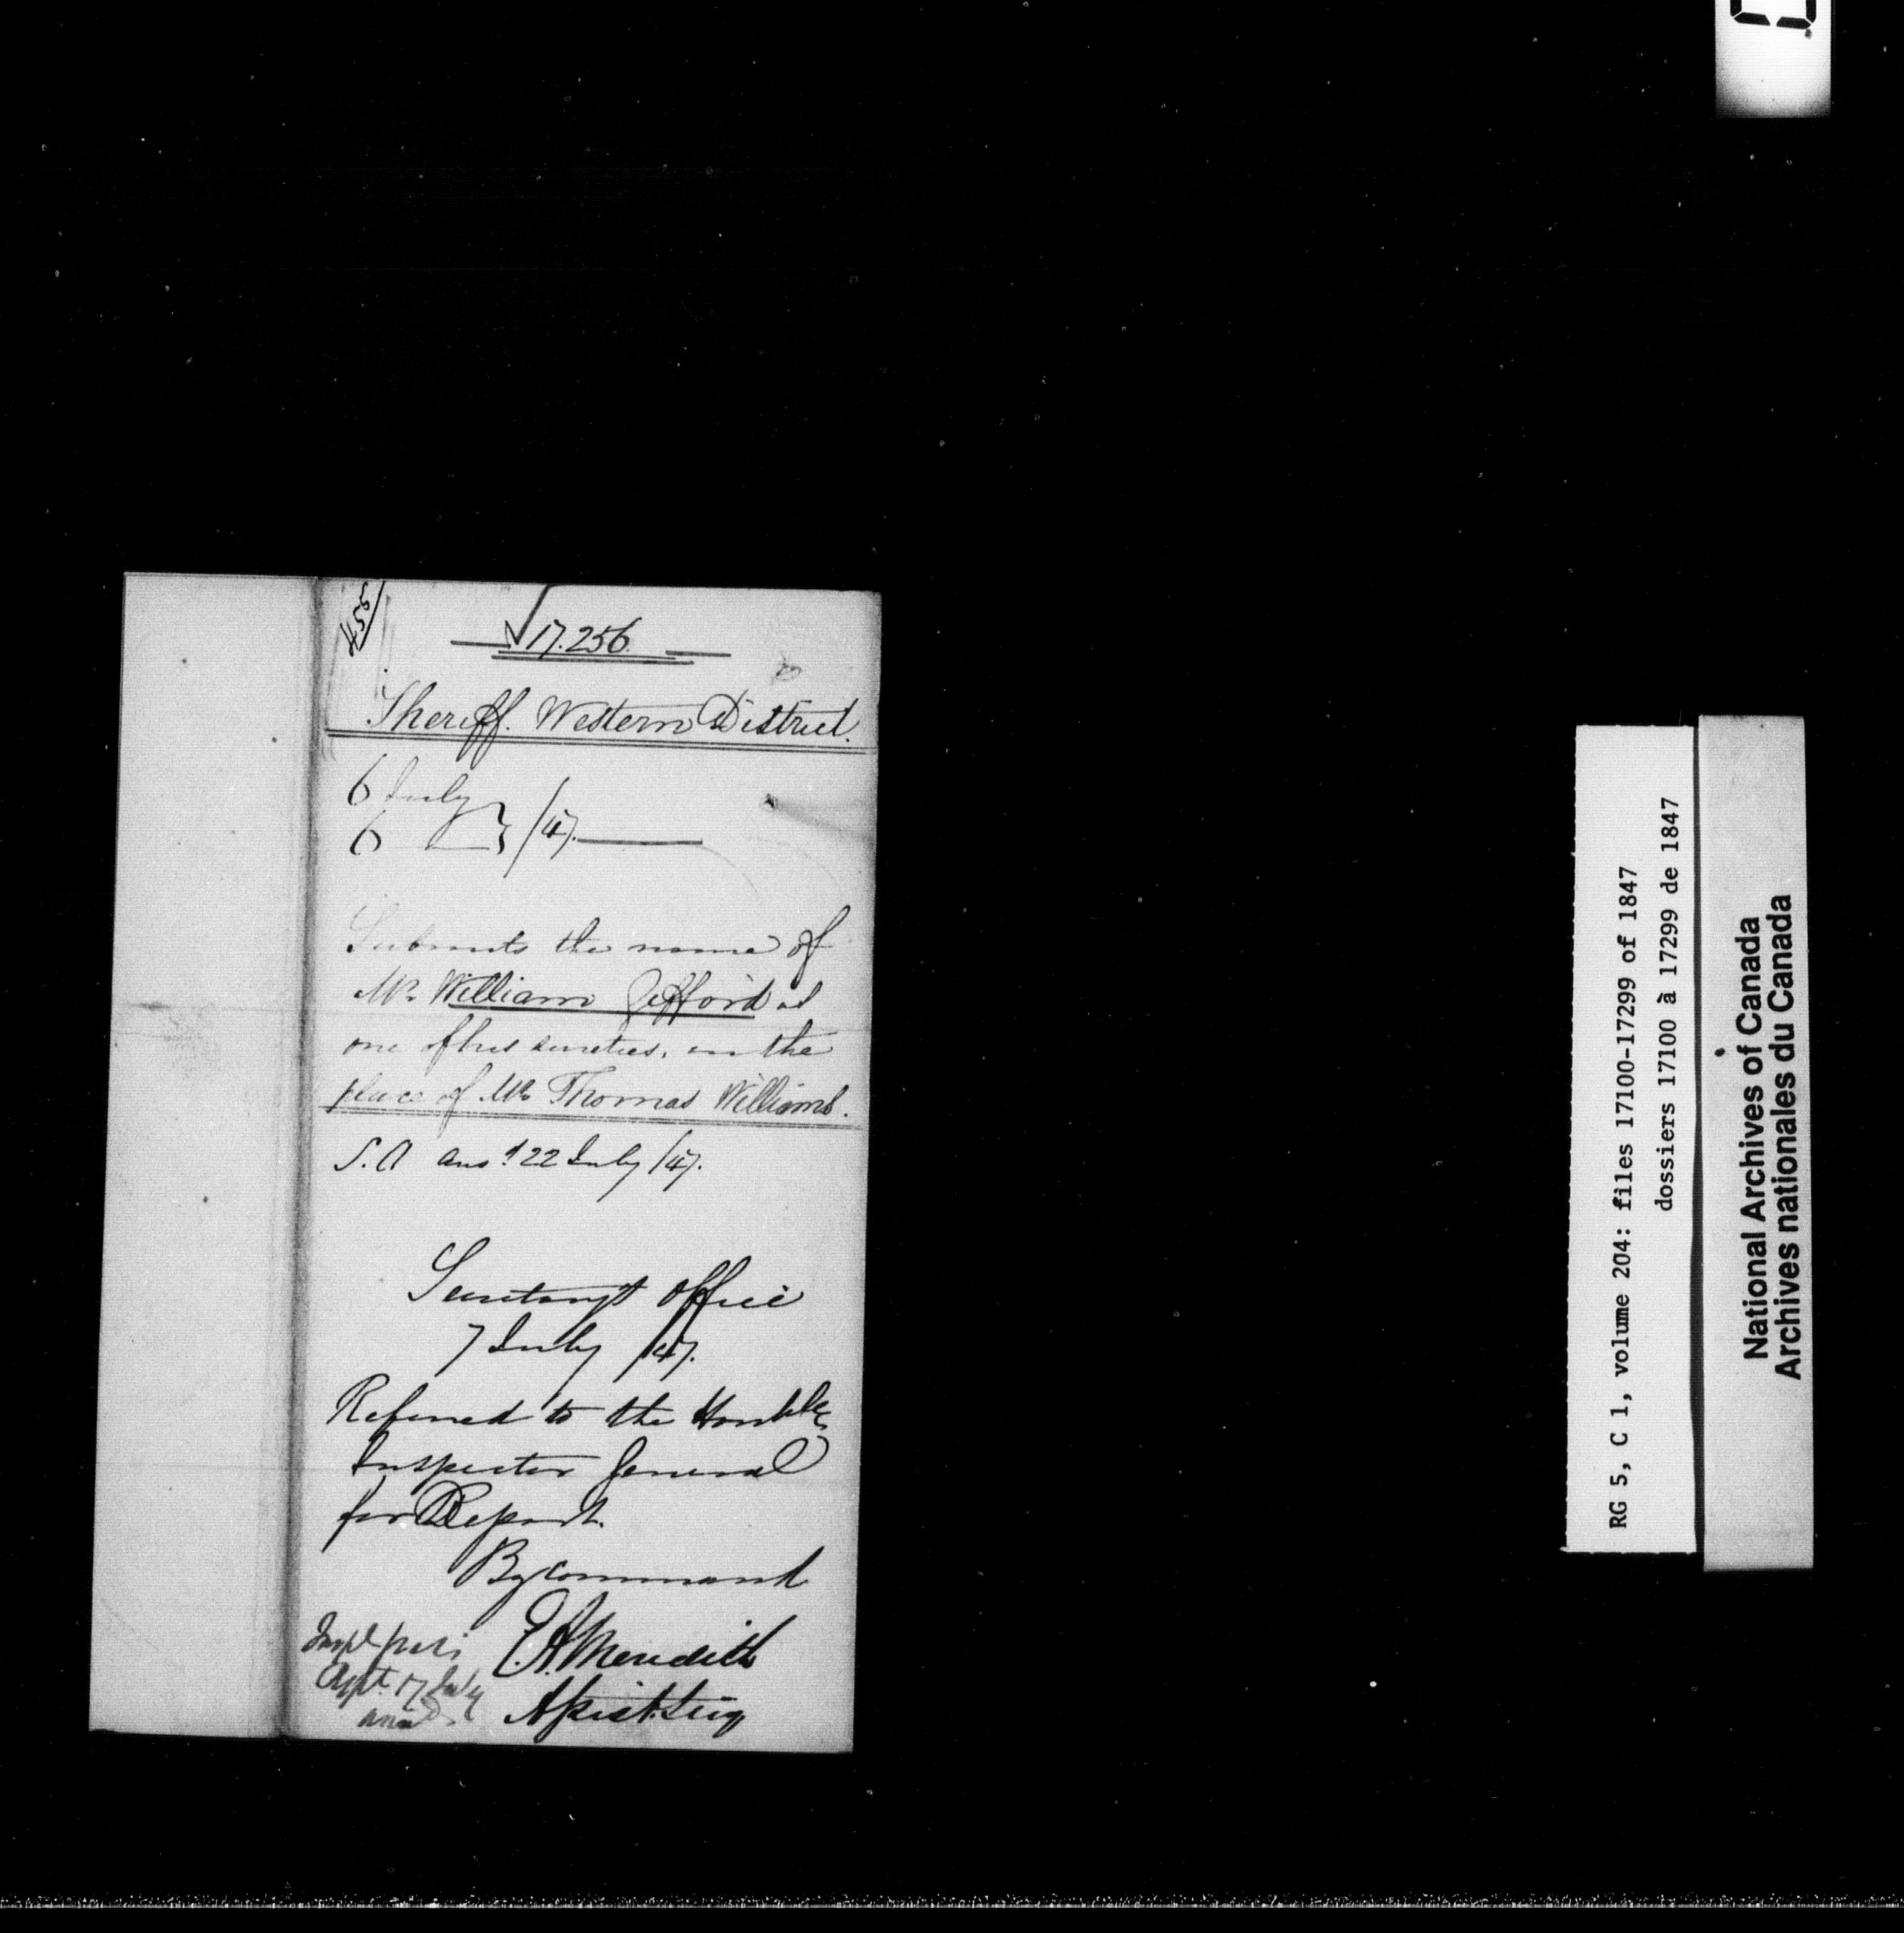 455
17.256
Sheriff. Western District.
6 July
6 — } /47.
Submits the name of
Mr. William Gifford as
one of his sureties, in the
place of Mr Thomas Williams.
S.A ansd 22 July /47.
Secretary's Office
7 July /47.
Referred to the Honble
Inspector General
for Report.
By Command
E.A. Meredith
Assist. Secy
17 July
RG 5, C 1, volume 204: files 17100-17299 of 1847
dossiers 17100 à 17299 de 1847
National Archives of Canada
Archives nationales du Canada